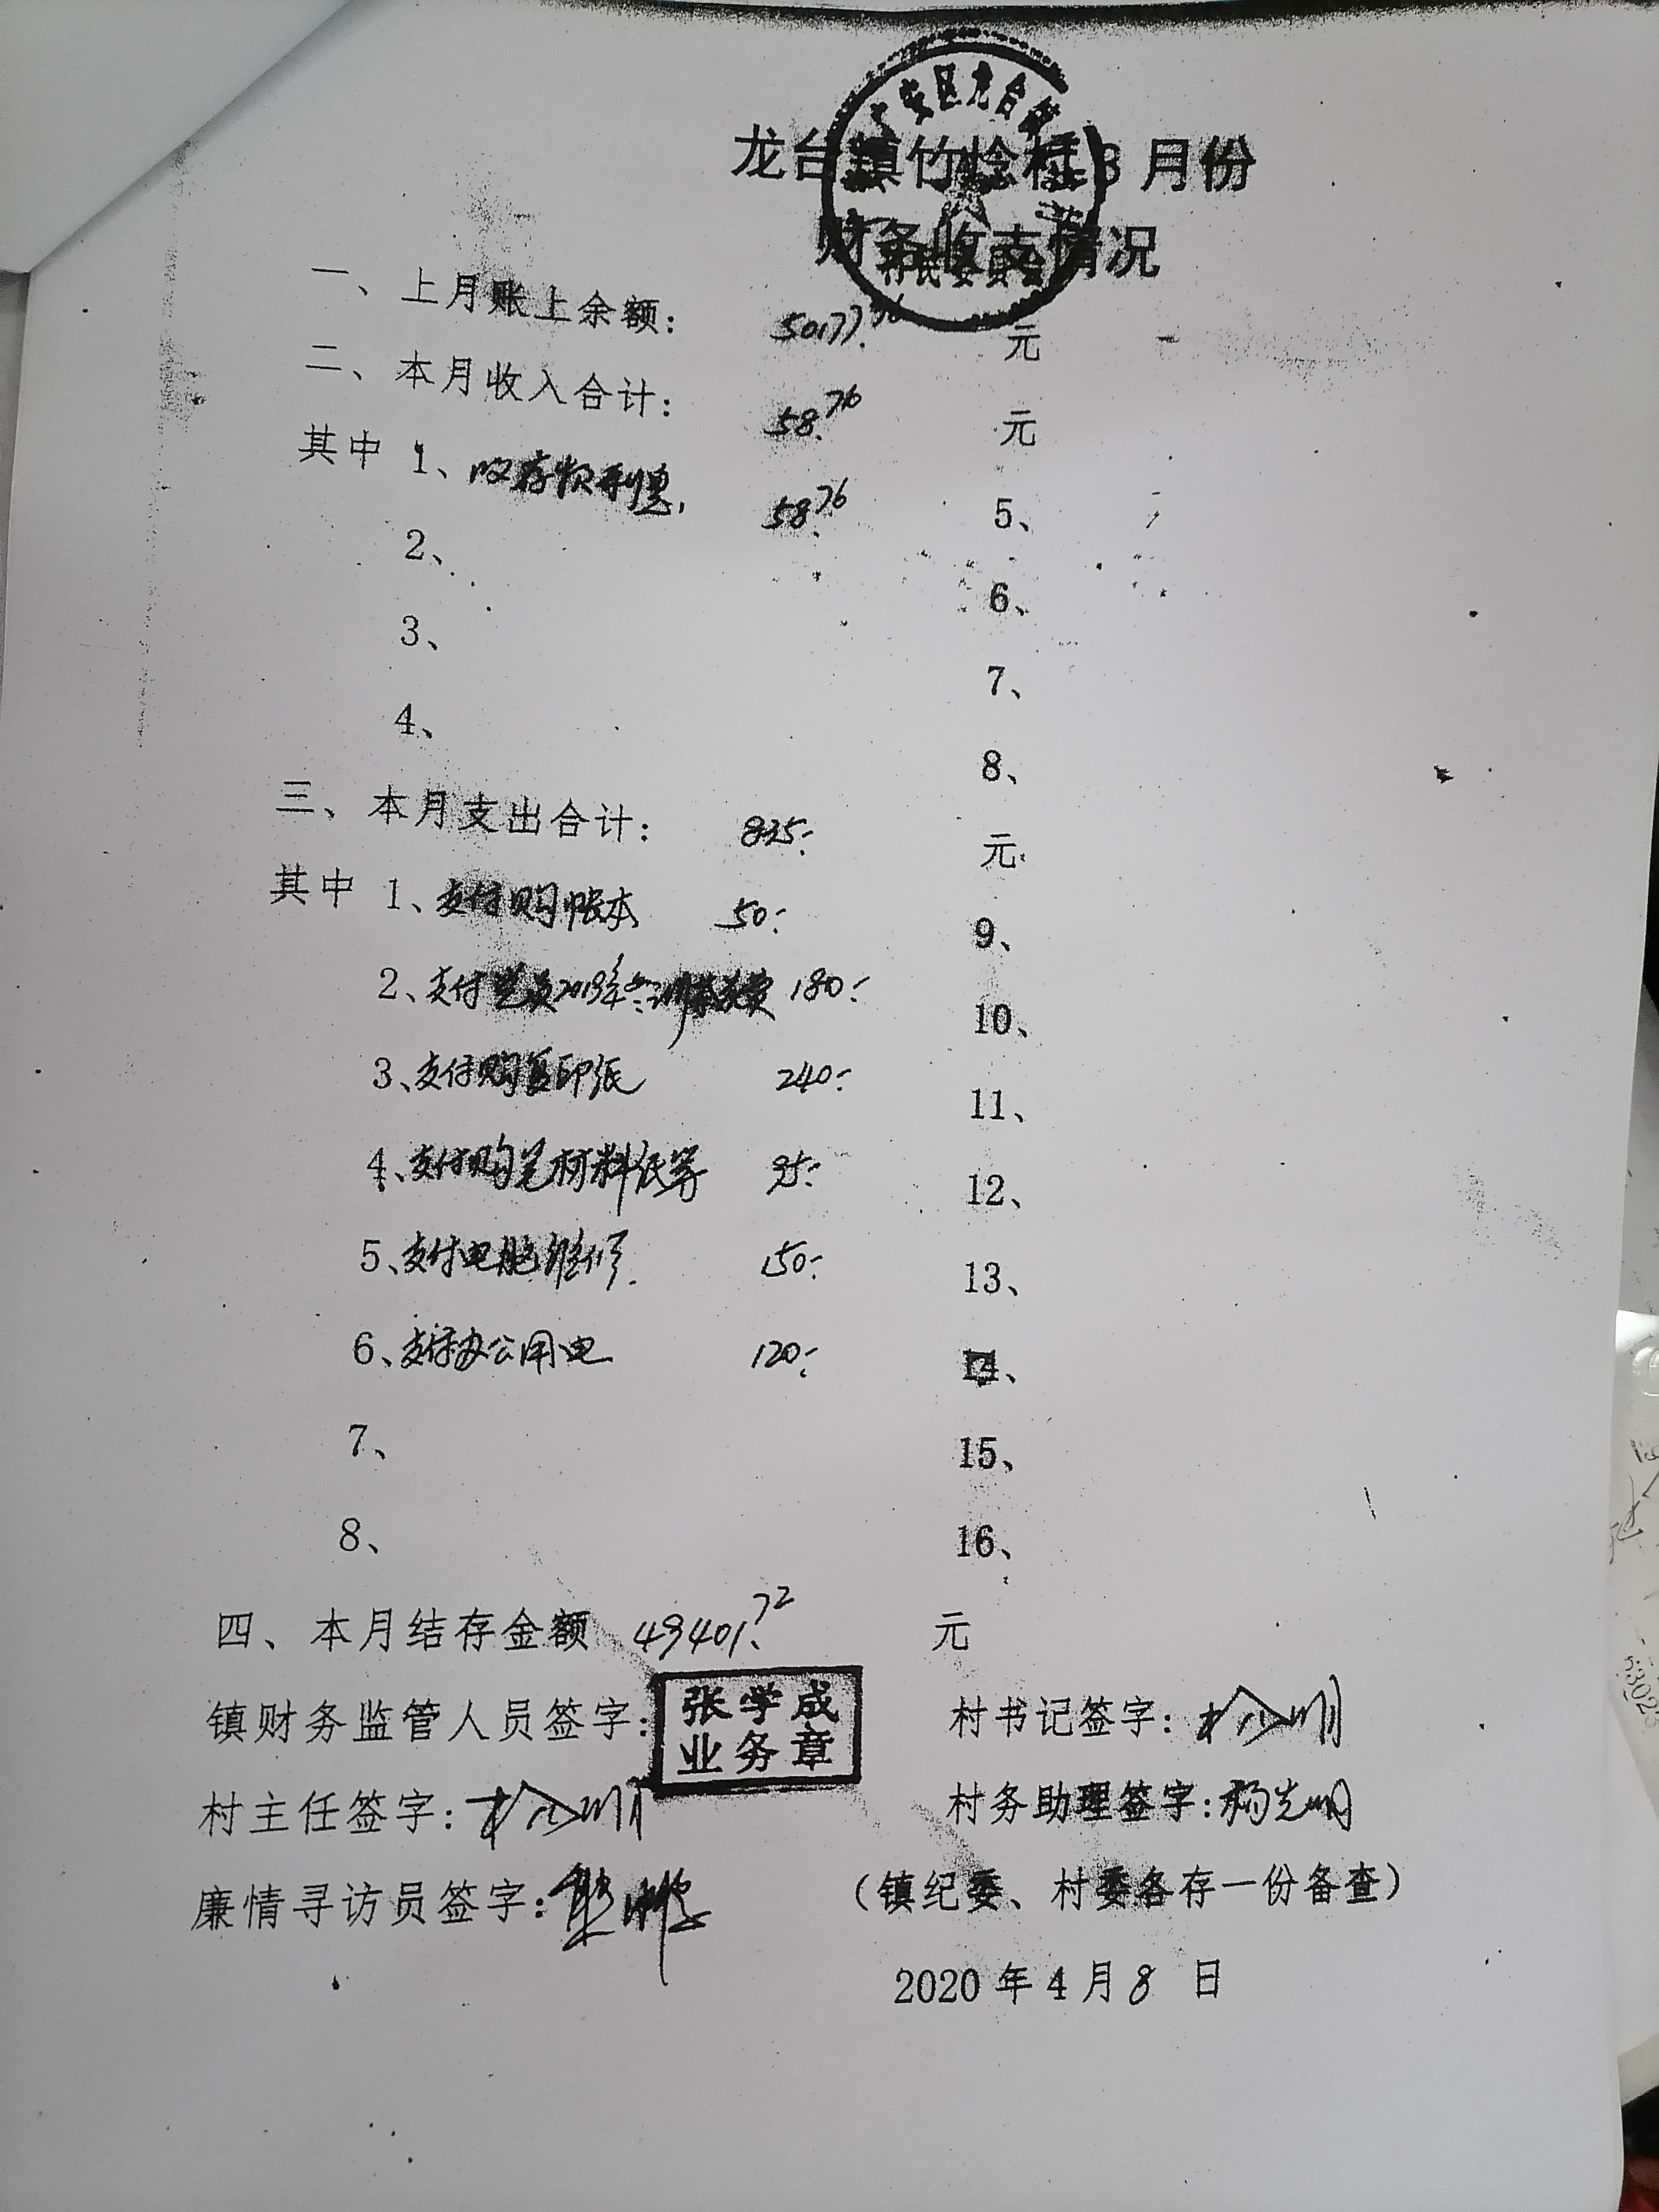 龙台镇竹埝村3月份
财务收支情况
安区龙台镇
村民委员会
一、上月账上余额: 50177.96 元
二、本月收入合计: 58.76 元
其中 1、收存款利息, 58.76 5、
2、 6、
3、 7、
4、 8、
三、本月支出合计: 835.- 元
其中 1、支付购帐本 50.- 9、
2、支付党员2019年 180.- 10、
3、支付购复印纸 240.- 11、
4、支付购 材料纸等 95.- 12、
5、支付电脑维修. 150.- 13、
6、支付办公用电 120.- 14、
7、 15、
8、 16、
四、本月结存金额 49401.72 元
镇财务监管人员签字: 张学成 业务章 村书记签字:
村主任签字: 村务助理签字:杨光明
廉情寻访员签字: (镇纪委、村委各存一份备查)
2020年4月8日